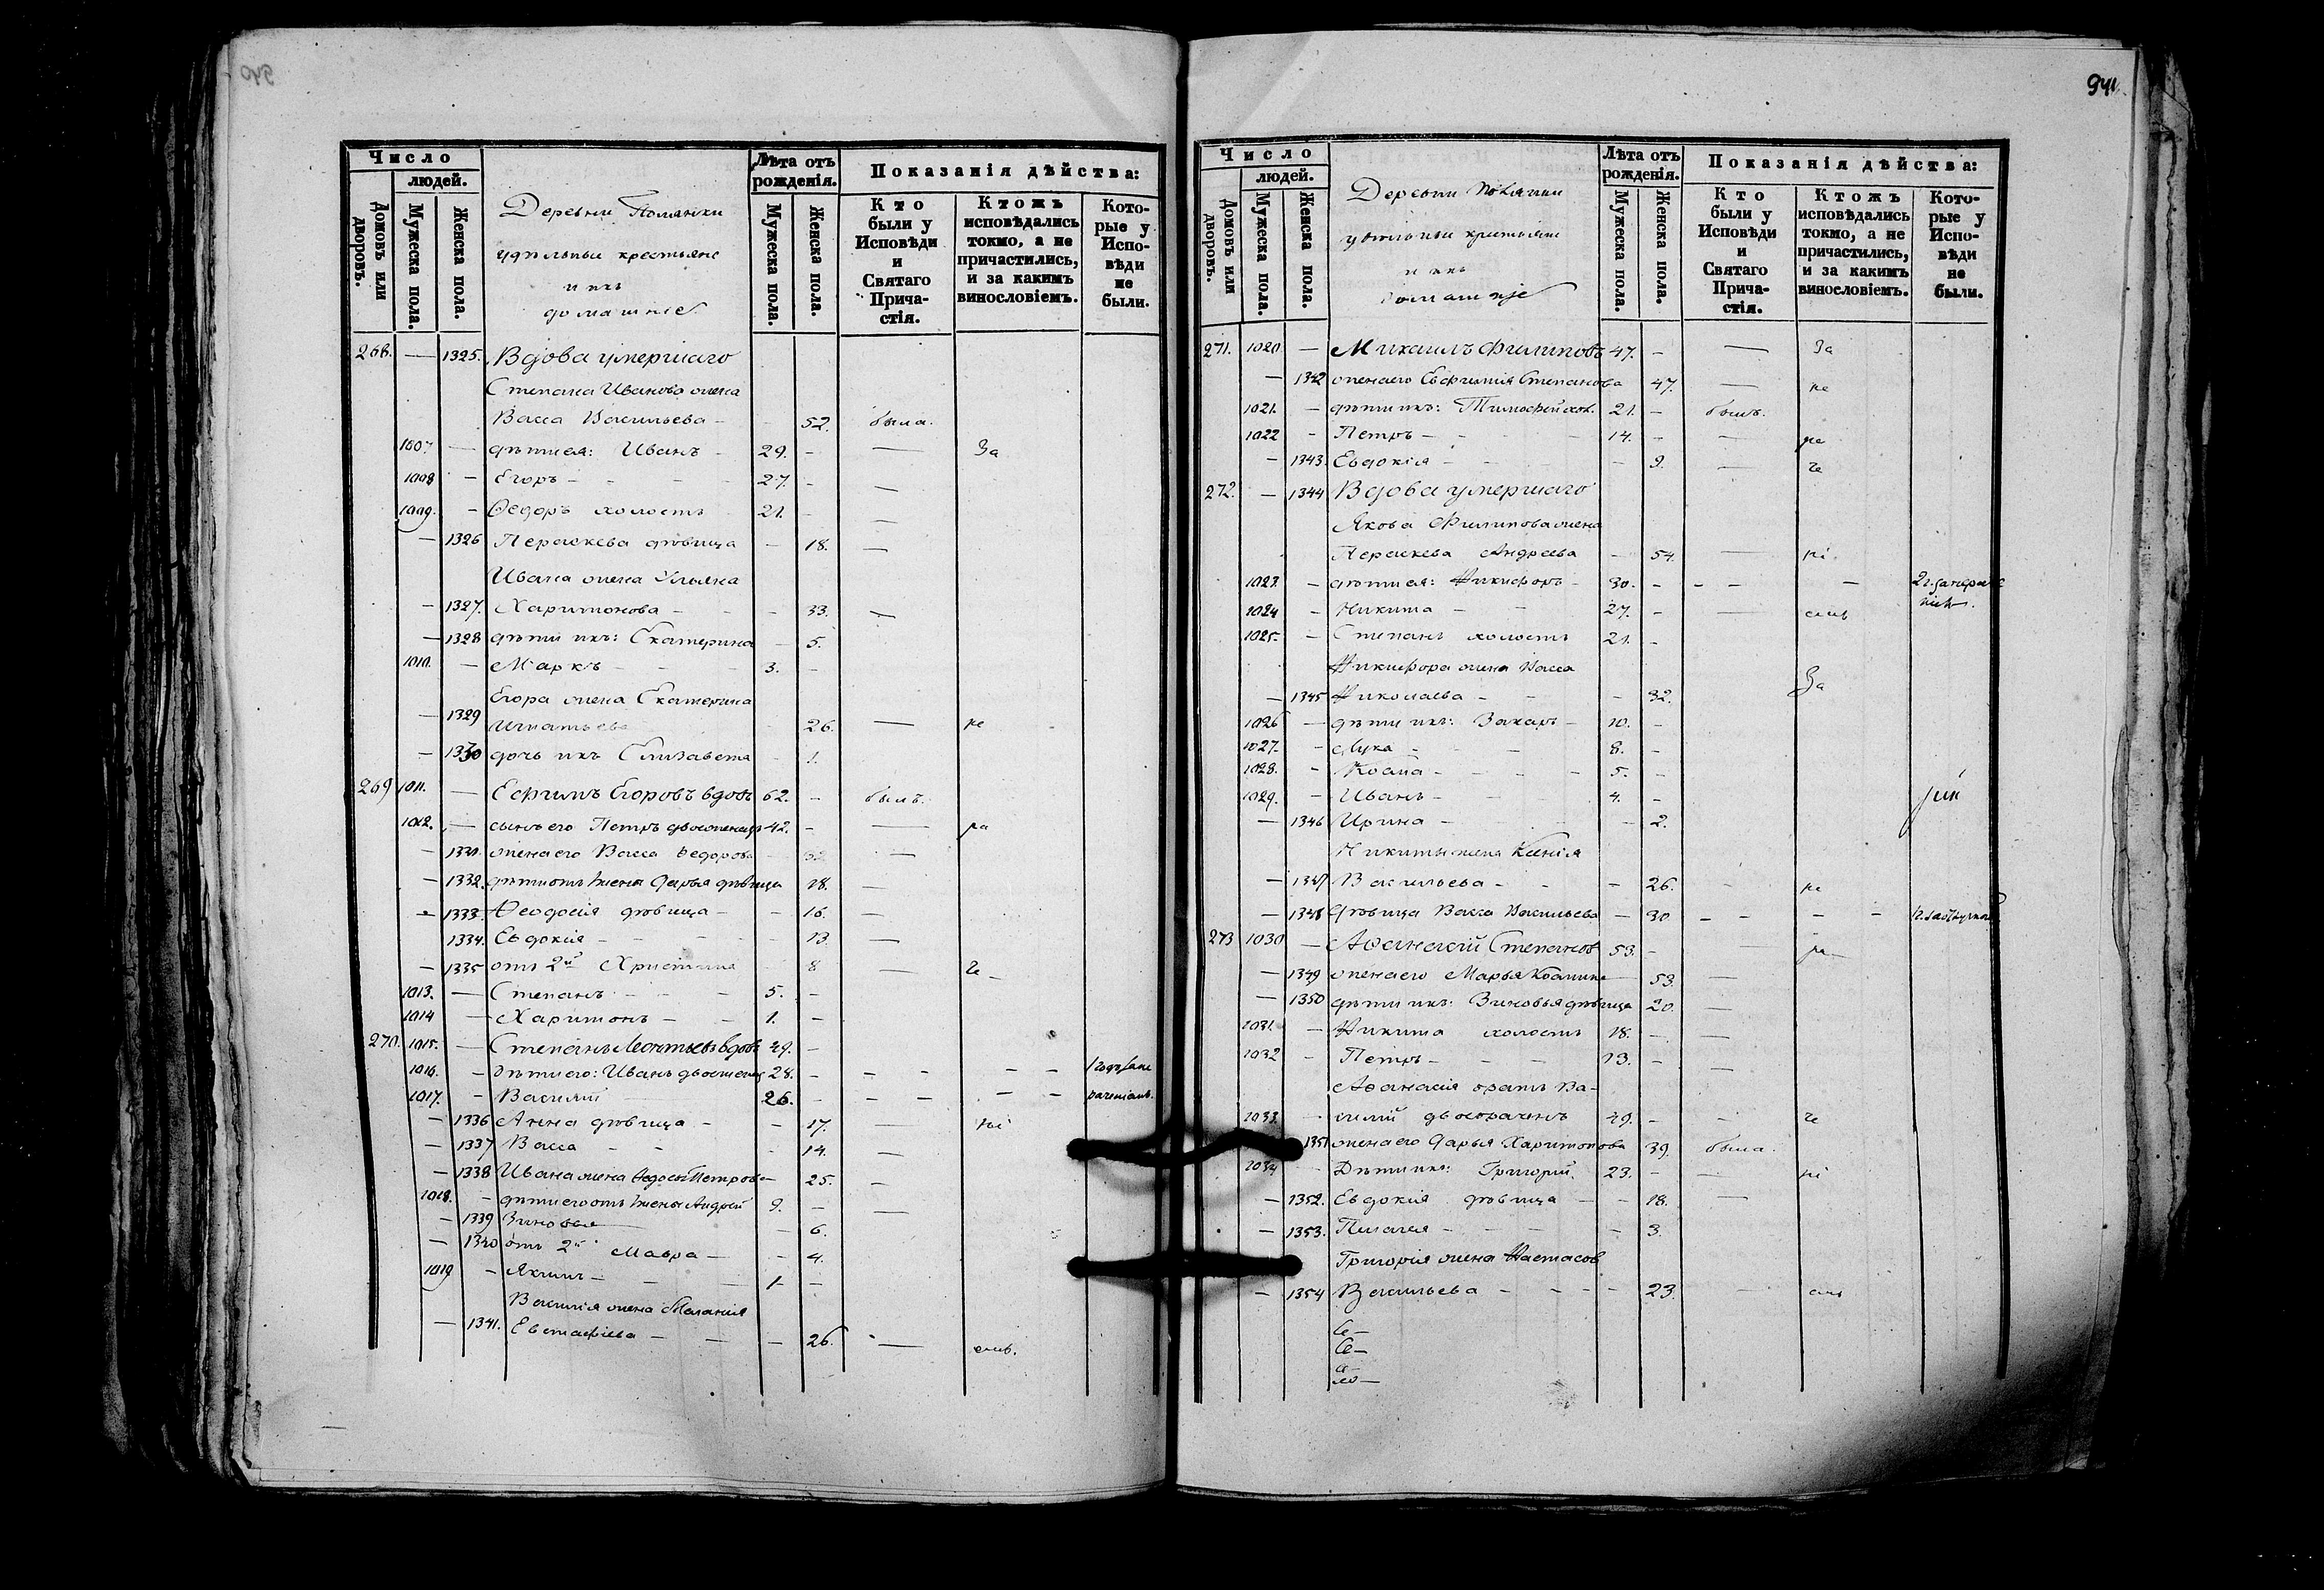 940
Число
людей.
Домовъ или дворовъ.
Мужеска пола.
Женска пола.
Деревни Полянки
удѣльныи крестьяне
и ихъ
домашніе
Лѣта отъ рожденія.
Мужеска пола.
Женска пола.
Показанія дѣйства:
Кто были у Исповѣди и Святаго Причастія.
Ктожъ исповѣдались токмо, а не причастились, и за какимъ винословіемъ.
Которые у Исповѣди не были.
268. — 1325. Вдова умершаго
Степана Иванова жена
Васса Васильева — 52. была.
1007 — дѣти ея: Иванъ — 29. — — За
1008 — Егоръ — 27. — —
1009. — Ѳедоръ холостъ 21. — —
— 1326 Параскева дѣвица — 18. —
Ивана жена Ульяна
— 1327. Харитонова — — 33. —
— 1328 дѣти ихъ: Екатерина — 5.
1010. — Маркъ — 3. —
Егора жена Екатерина
— 1329 Игнатьева — 26. —
— 1330 дочь ихъ Елизавета — 1.
269 1011. — Ефимъ Егоровъ вдовъ 62. — былъ.
1012. — сынъ его Петръ двоеженецъ 42. — —
— 1331. жена его Васса Ѳедорова —
— 1332. дѣти отъ 1 жены Дарья дѣвица 18. —
— 1333. Ѳеодосія дѣвица — — 16. —
1334. Евдокія — — 13. —
— 1335 отъ 2й Христина — 8 —
1013. — Степанъ — 5. —
1014 — Харитонъ — 1. —
270. 1015. — Степанъ Леонтьевъ вдовъ 49. —
1016. — Дѣти его: Иванъ двоеженецъ 28. — — —
1017. — Василій 26. — — —
— 1336 Анна дѣвица — — 17. —
— 1337 Васса — — 14. —
— 1338 Ивана жена Ѳедосья Петрова — 25. —
1018. — дѣти его отъ 1 жены Андрей 9. — —
— 1339 Зиновья — 6.
— 1340 отъ 2й Мавра — — 4.
1019 — Якимъ — 1 —
Василія жена Меланія
— 1341. Евстафіева — — 26. —
941
Число
людей.
Домовъ или дворовъ.
Мужеска пола.
Женска пола.
Деревни Полянки
удѣльныи крестьяне
и ихъ
домашніе
Лѣта отъ рожденія.
Мужеска пола.
Женска пола.
Показанія дѣйства:
Кто были у Исповѣди и Святаго Причастія.
Ктожъ исповѣдались токмо, а не причастились, и за какимъ винословіемъ.
Которые у Исповѣди не были.
271. 1020 — Михаилъ Филиповъ 47. — — За
— 1342 жена его Евфимія Степанова 47. —
1021. — дѣти ихъ: Тимофей хол. 21. — былъ.
1022 — Петръ — 14. — —
— 1343. Евдокія — — 9. —
272. — 1344 Вдова умершаго
Якова Филипова жена
Параскева Андреева — 54. —
1023. — дѣти ея: Никифоръ — 30. — — — —
1024 — Никита — 27. — —
1025. — Степанъ холостъ 21. —
Никифора жена Васса
— 1345 Николаева — — 32. За
1026 — дѣти ихъ: Захаръ — 10. —
1027. — Лука — 8. —
1028. — Козма — 5. —
1029. — Иванъ — 4. —
— 1346 Ирина — — 2.
Никиты жена Ксенія
— 1347 Васильева — — 26.
— 1348 дѣвица Васса Васильева — 30 — — — —
273 1030 — Аѳанасій Степановъ 53. —
— 1349 жена его Марья Козмина 53. —
— 1350 дѣти ихъ: Зиновья дѣвица 20. —
1031. — Никита холостъ 18. — —
1032 — Петръ — 13. — —
Аѳанасія братъ Ва-
1033. силій двоебраченъ 49. —
1351 жена его Дарья Харитонова 39. была.
1034 — Дѣти ихъ: Григорій. 23. — —
— 1352. Евдокія дѣвица — — 18. —
— 1353. Пелагея — — 3.
Григорія жена Настасья
— 1354 Васильева — — 23. —